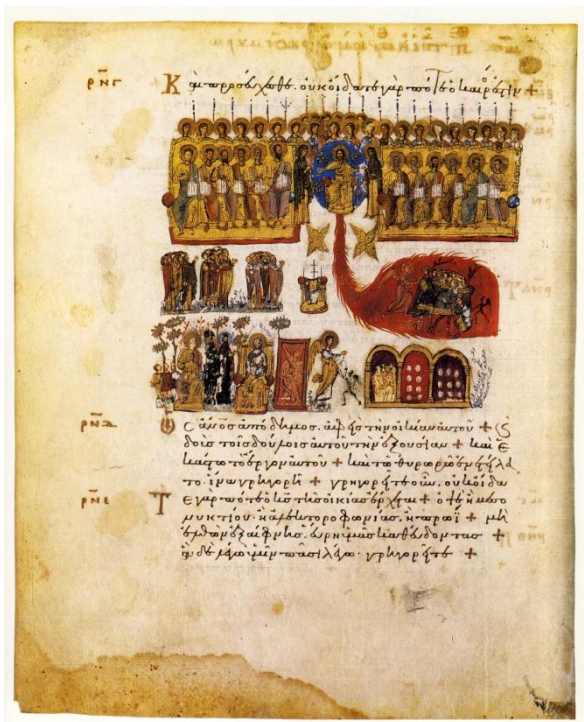 ρνγ Καὶ προσεύχεσθε. οὐκ οἴδατε γὰρ πότε ὁ καιρός ἐστιν +
ρνδ Ὡς ἄνος ἀπόδημος. ἀφεὶς τὴν οἰκίαν αὐτοῦ + καὶ
δοὺς τοῖς δούλοις αὐτοῦ τὴν ἐξουσίαν + καὶ ἑ
κάστω τὸ ἔργον αὐτοῦ + καὶ τῶ θυρωρῶ ἐνετείλα
το. ἵνα γρηγορῆ + γρηγορεῖτε οὖν. οὐκ οἴδα
ρνε Τε γὰρ πότε ὁ κς τῆς οἰκίας ἔρχεται + ὀψὲ ἢ μεσο
νυκτίου. ἢ ἀλεκτοροφωνίας. ἢ πρωΐ + μὴ
ἐλθὼν ἐξαίφνης. εὕρη ὑμᾶς καθεύδοντας +
ἃ δὲ λέγω ὑμῖν πᾶσι λέγω. γρηγορεῖτε +